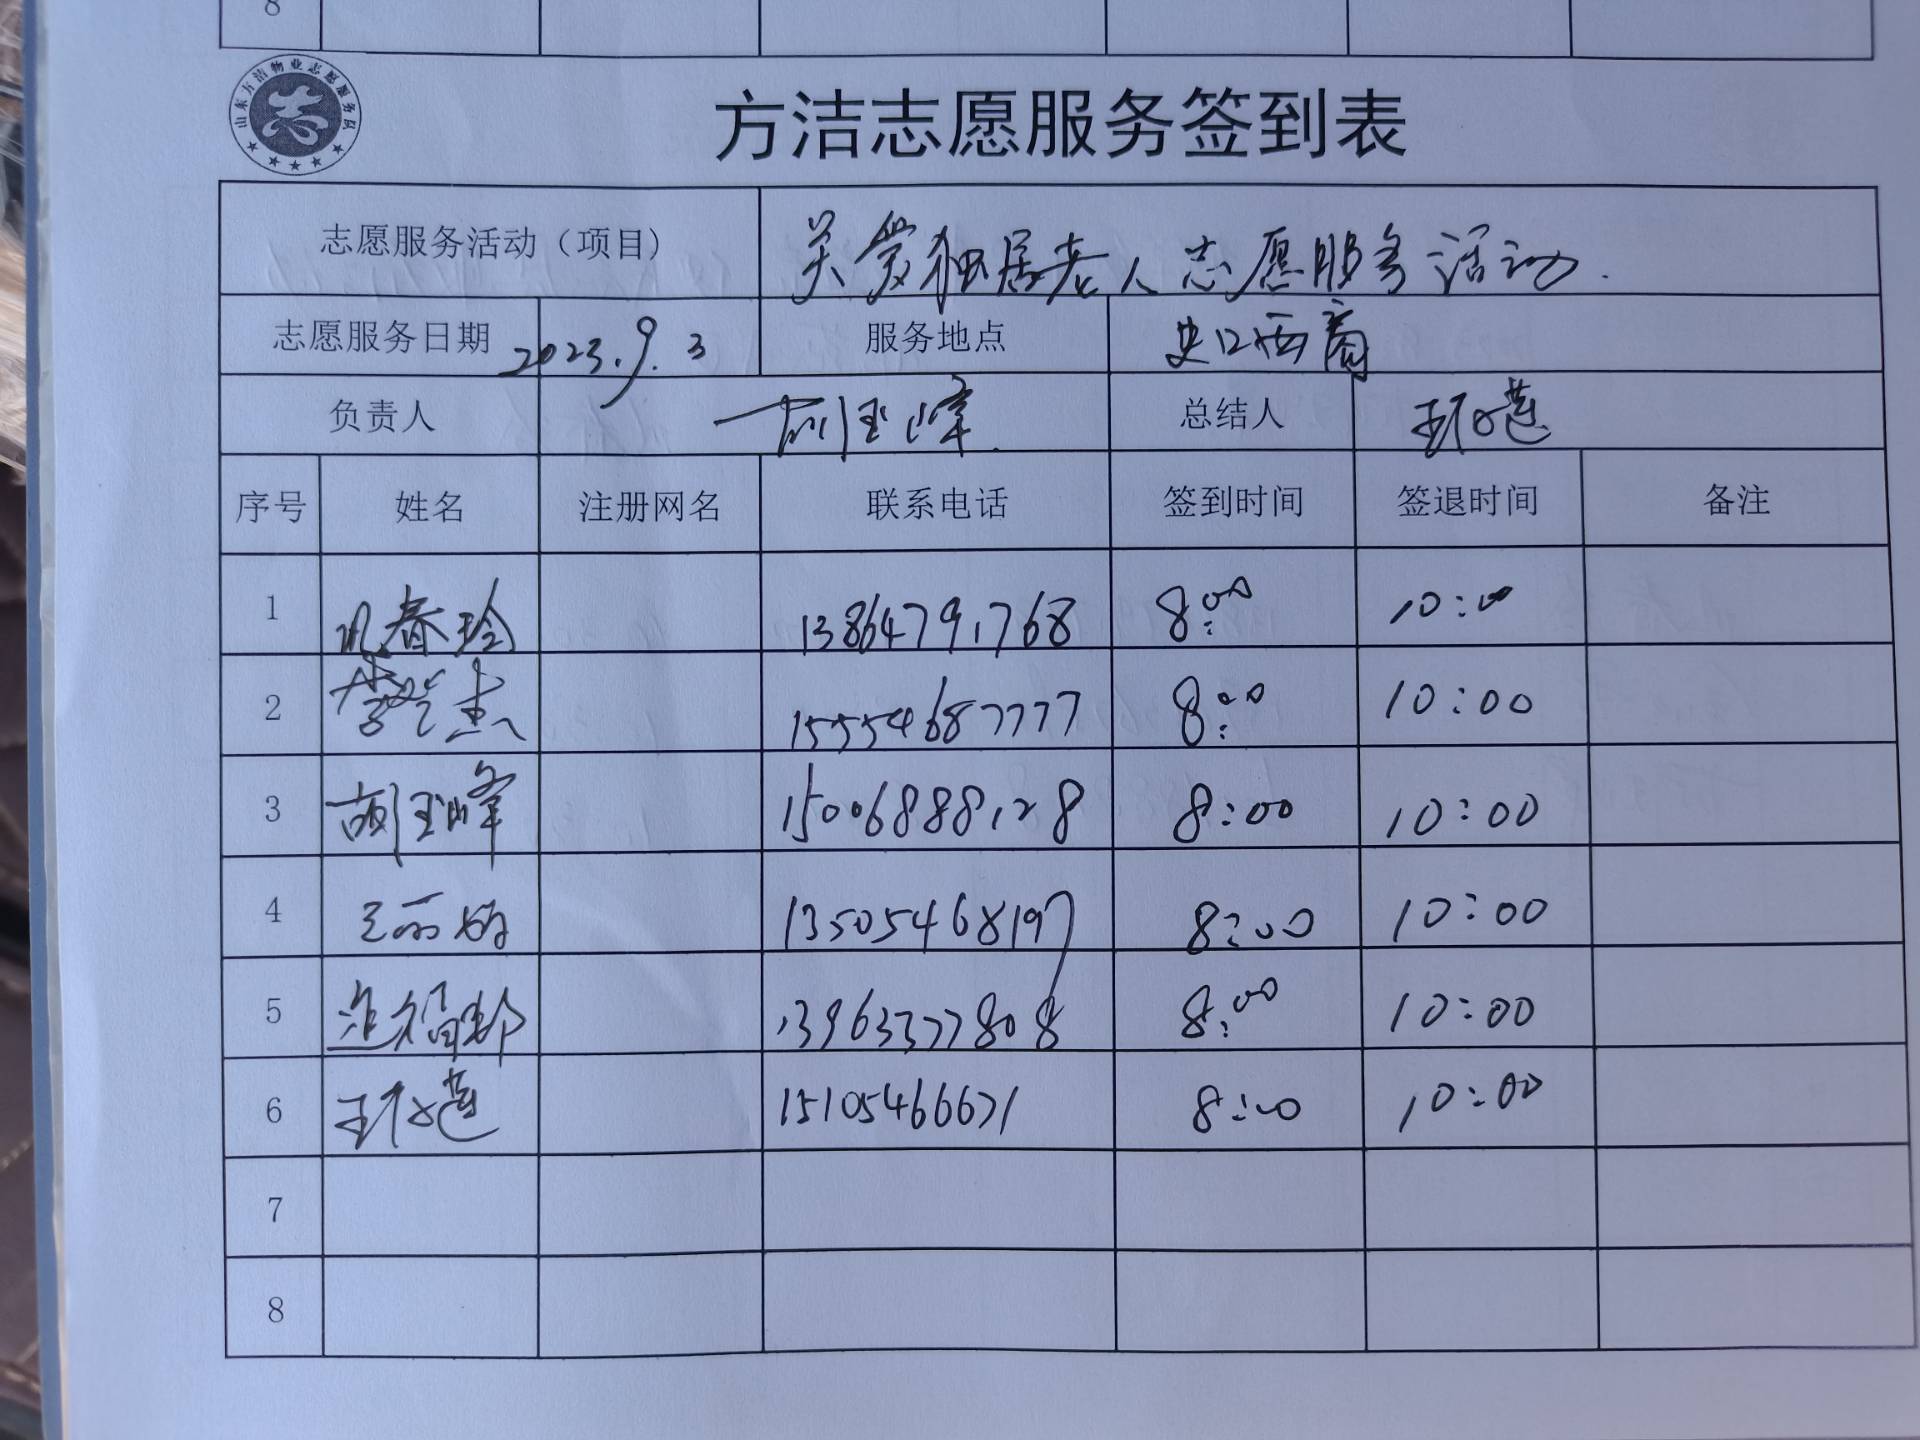 8
山东方洁物业志愿服务队
志
方洁志愿服务签到表
志愿服务活动（项目） 关爱独居老人志愿服务活动.
志愿服务日期 2023.9.3 服务地点 史口西商
负责人 总结人
序号 姓名 注册网名 联系电话 签到时间 签退时间 备注
1 春玲 13864791768 8:00 10:00
2 15554687777 8:00 10:00
3 胡玉峰 15006888128 8:00 10:00
4 王丽娟 13505468197 8:00 10:00
5 13963377808 8:00 10:00
6 15105466671 8:00 10:00
7
8